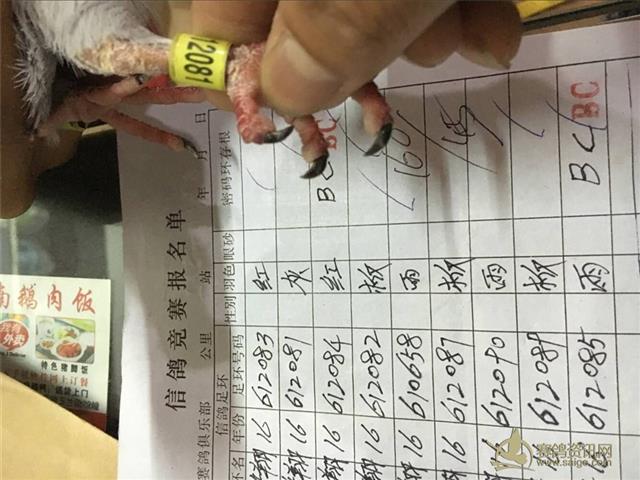 12081
信鸽竞赛报名单
赛鸽俱乐部 公里 站 年 月 日
信鸽足环
环名 年份 足环号码 性别 羽色 眼砂 密码环存根
翔 16 612083 红
翔 16 612081 灰
翔 16 612084 红 BC BC
翔 16 612082
翔 16 610658 雨 160
翔 16 612087
16 612090 雨
16 612089
16 612085 雨 BC BC
鹅肉饭
外卖
特色猪脚饭
网上订餐
赛鸽资讯网
www.saige.com